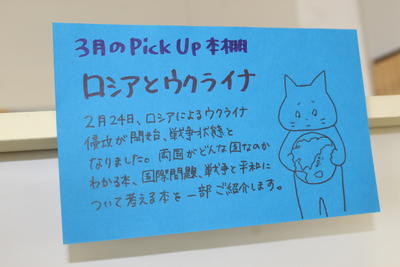 3月のPick Up 本棚
ロシアとウクライナ
2月24日、ロシアによるウクライナ
侵攻が開始、戦争状態と
なりました。両国がどんな国なのか
わかる本、国際問題、戦争と平和に
ついて考える本を一部ご紹介します。